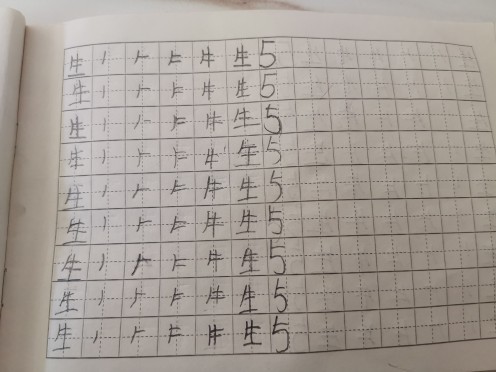 生 丿 𠂉 牛 生 5
生 丿 𠂉 牛 生 5
生 丿 𠂉 牛 生 5
生 丿 𠂉 牛 生 5
生 丿 𠂉 牛 生 5
生 丿 𠂉 牛 生 5
生 丿 𠂉 牛 生 5
生 丿 𠂉 牛 生 5
生 丿 𠂉 牛 生 5